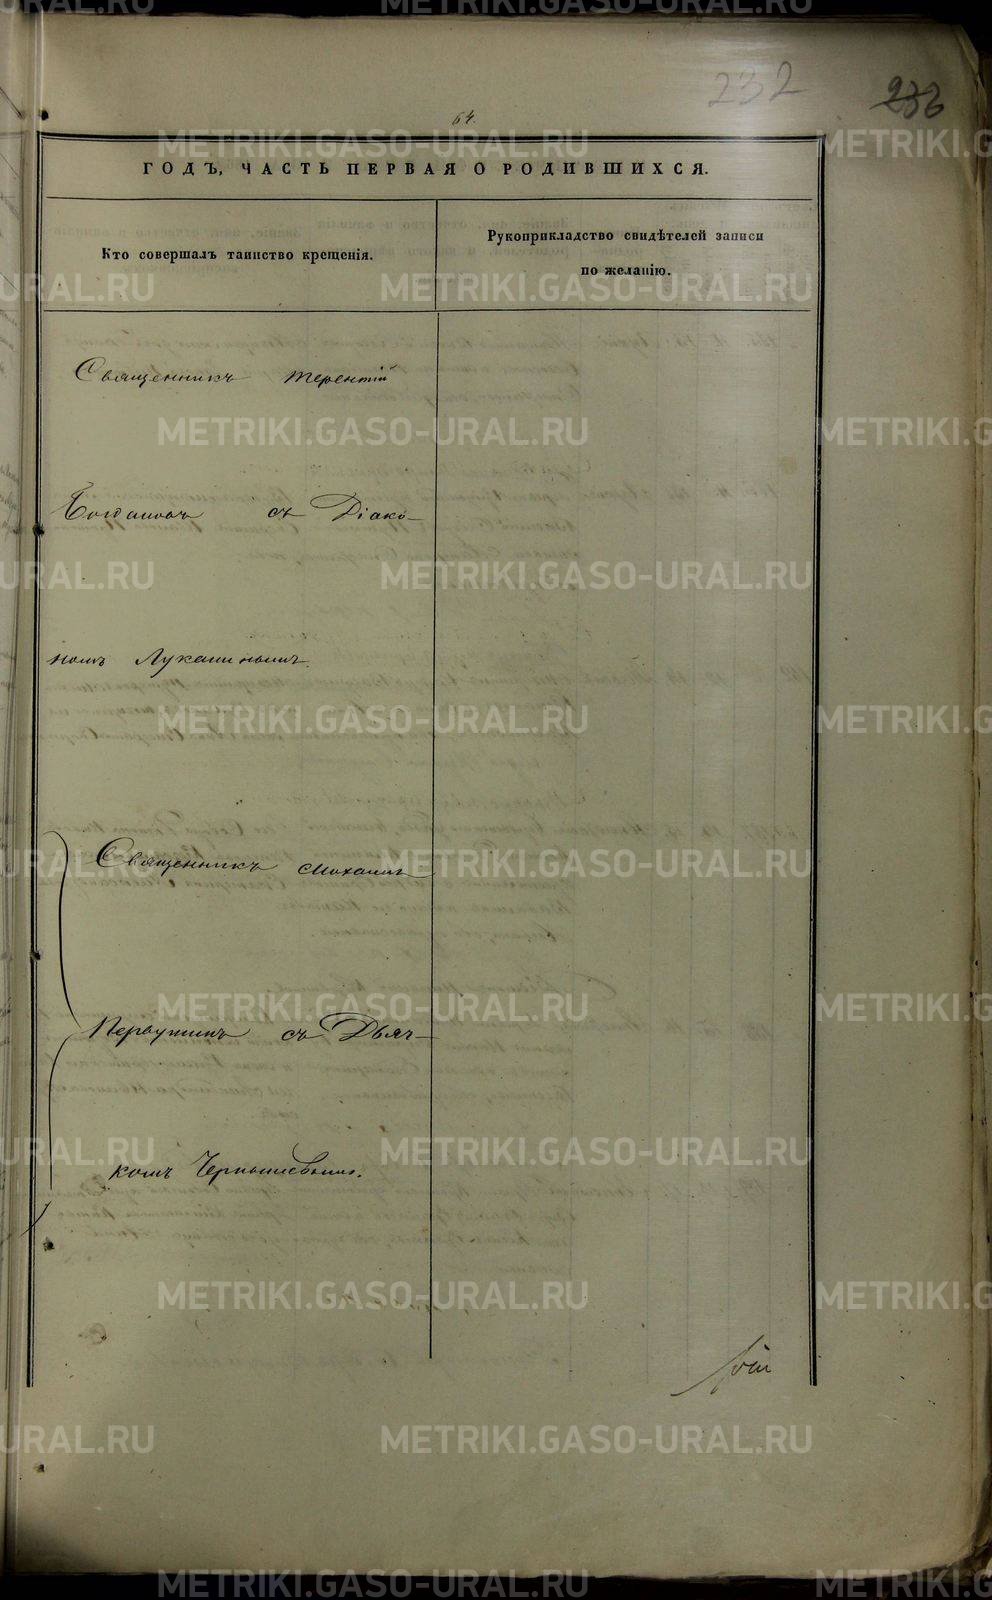 232
64.
ГОДЪ, ЧАСТЬ ПЕРВАЯ О РОДИВШИХСЯ.
Кто совершалъ таинство крещенія.
Рукоприкладство свидѣтелей записи
по желанію.
Священникъ Терентій
Богдановъ съ Діако-
номъ Лукинымъ.
Священникъ Михаилъ
Первушинъ съ Дьяч-
комъ Чернышевымъ.
METRIKI.GASO-URAL.RU